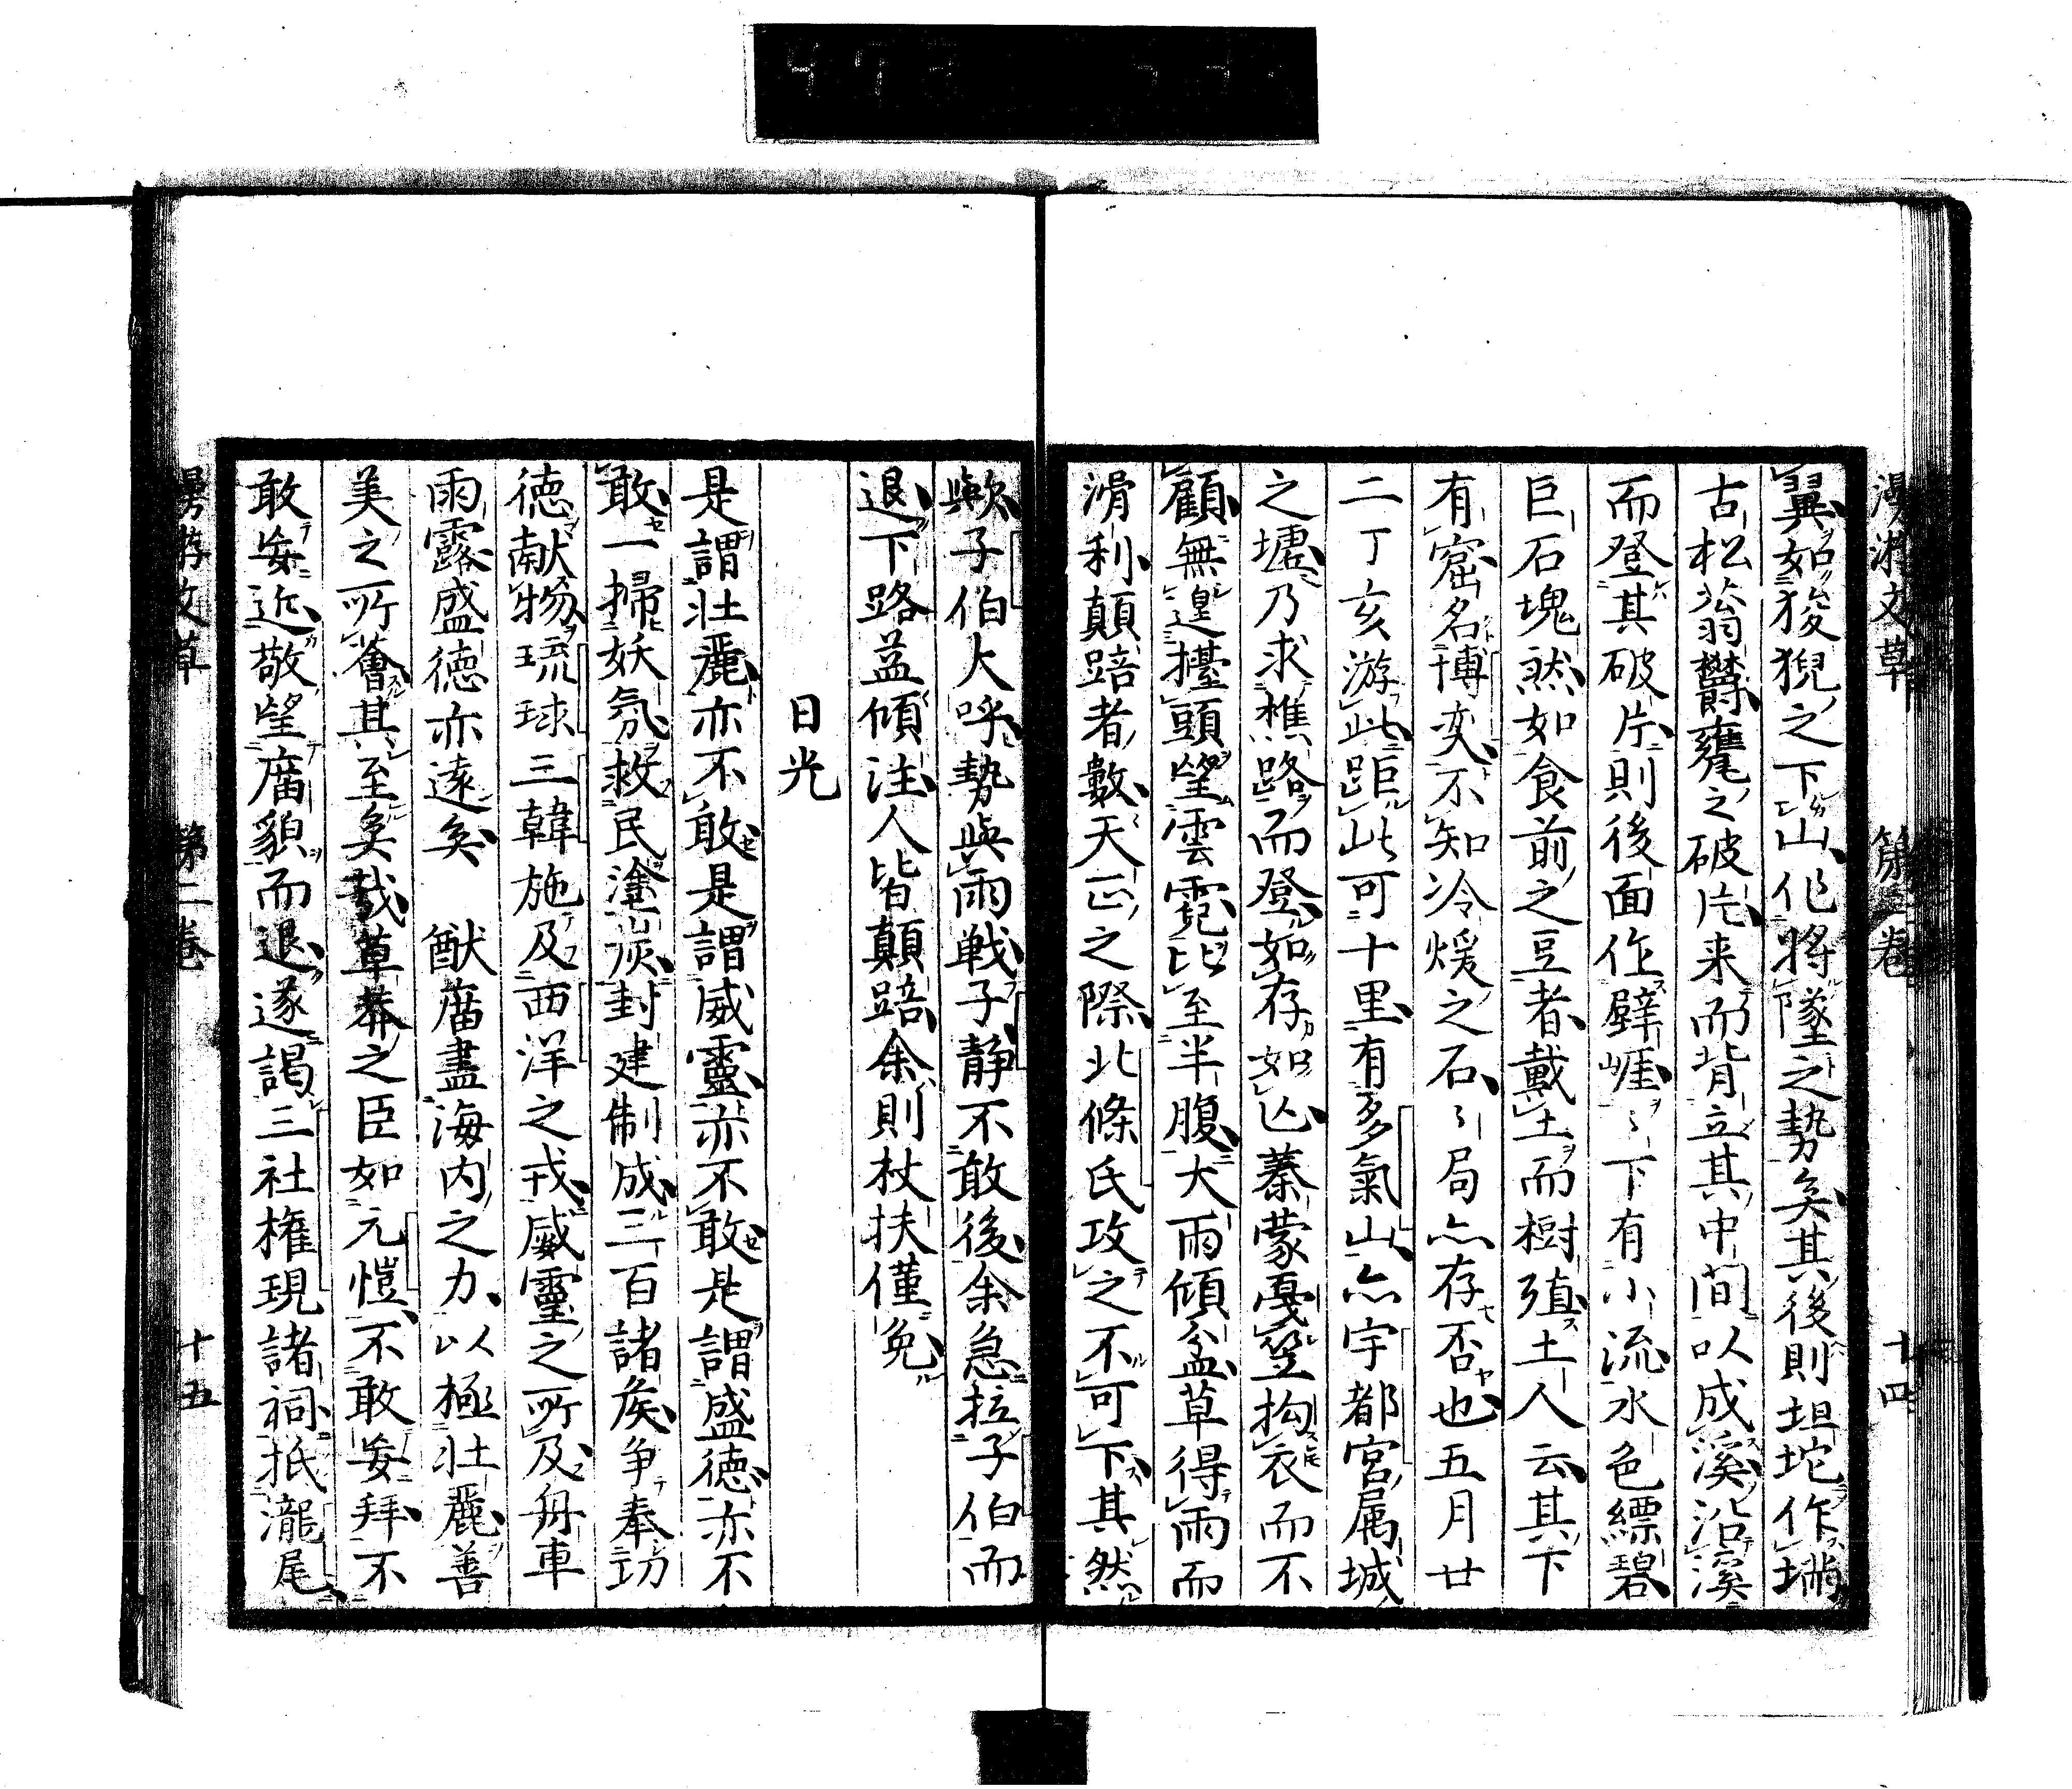 漫游文草　第二巻　十四
翼如狻猊之下山作將墜之勢矣其後則坦坨作墹
古松蓊欝甕之破片来而背立其中間以成溪沿溪
而登其破片則後面作壁崕〻下有小流水色縹碧
巨石塊然如食前之豆者戴土而樹殖土人云其下
有窟名博奕不知冷煖之石〻局亦存否也五月廿
二丁亥游此距此可十里有多氣山亦宇都宮属城
之墟乃求樵路而登如存如亾蓁蒙戞笠拘衣而不
顧無遑擡頭望雲霓比至半腹大雨傾盆草得雨而
滑利顛踣者數天正之際北條氏攻之不可下其然
歟子伯大呼勢與雨戦子静不敢後余急拉子伯而
退下路益傾注人皆顛踣余則杖扶僅免
日光
是謂壯麗亦不敢是謂威靈亦不敢是謂盛徳亦不
敢一掃妖氛救民塗炭封建制成三百諸矦争奉功
徳献物琉球三韓施及西洋之戎威靈之所及舟車
雨露盛徳亦遠矣　猷庿盡海内之力以極壯麗善
美之所薈其至矣哉草莽之臣如元愷不敢妄拜不
敢妄近敬望庿貌而退遂謁三社権現諸祠抵瀧尾
漫游文草　第二巻　十五